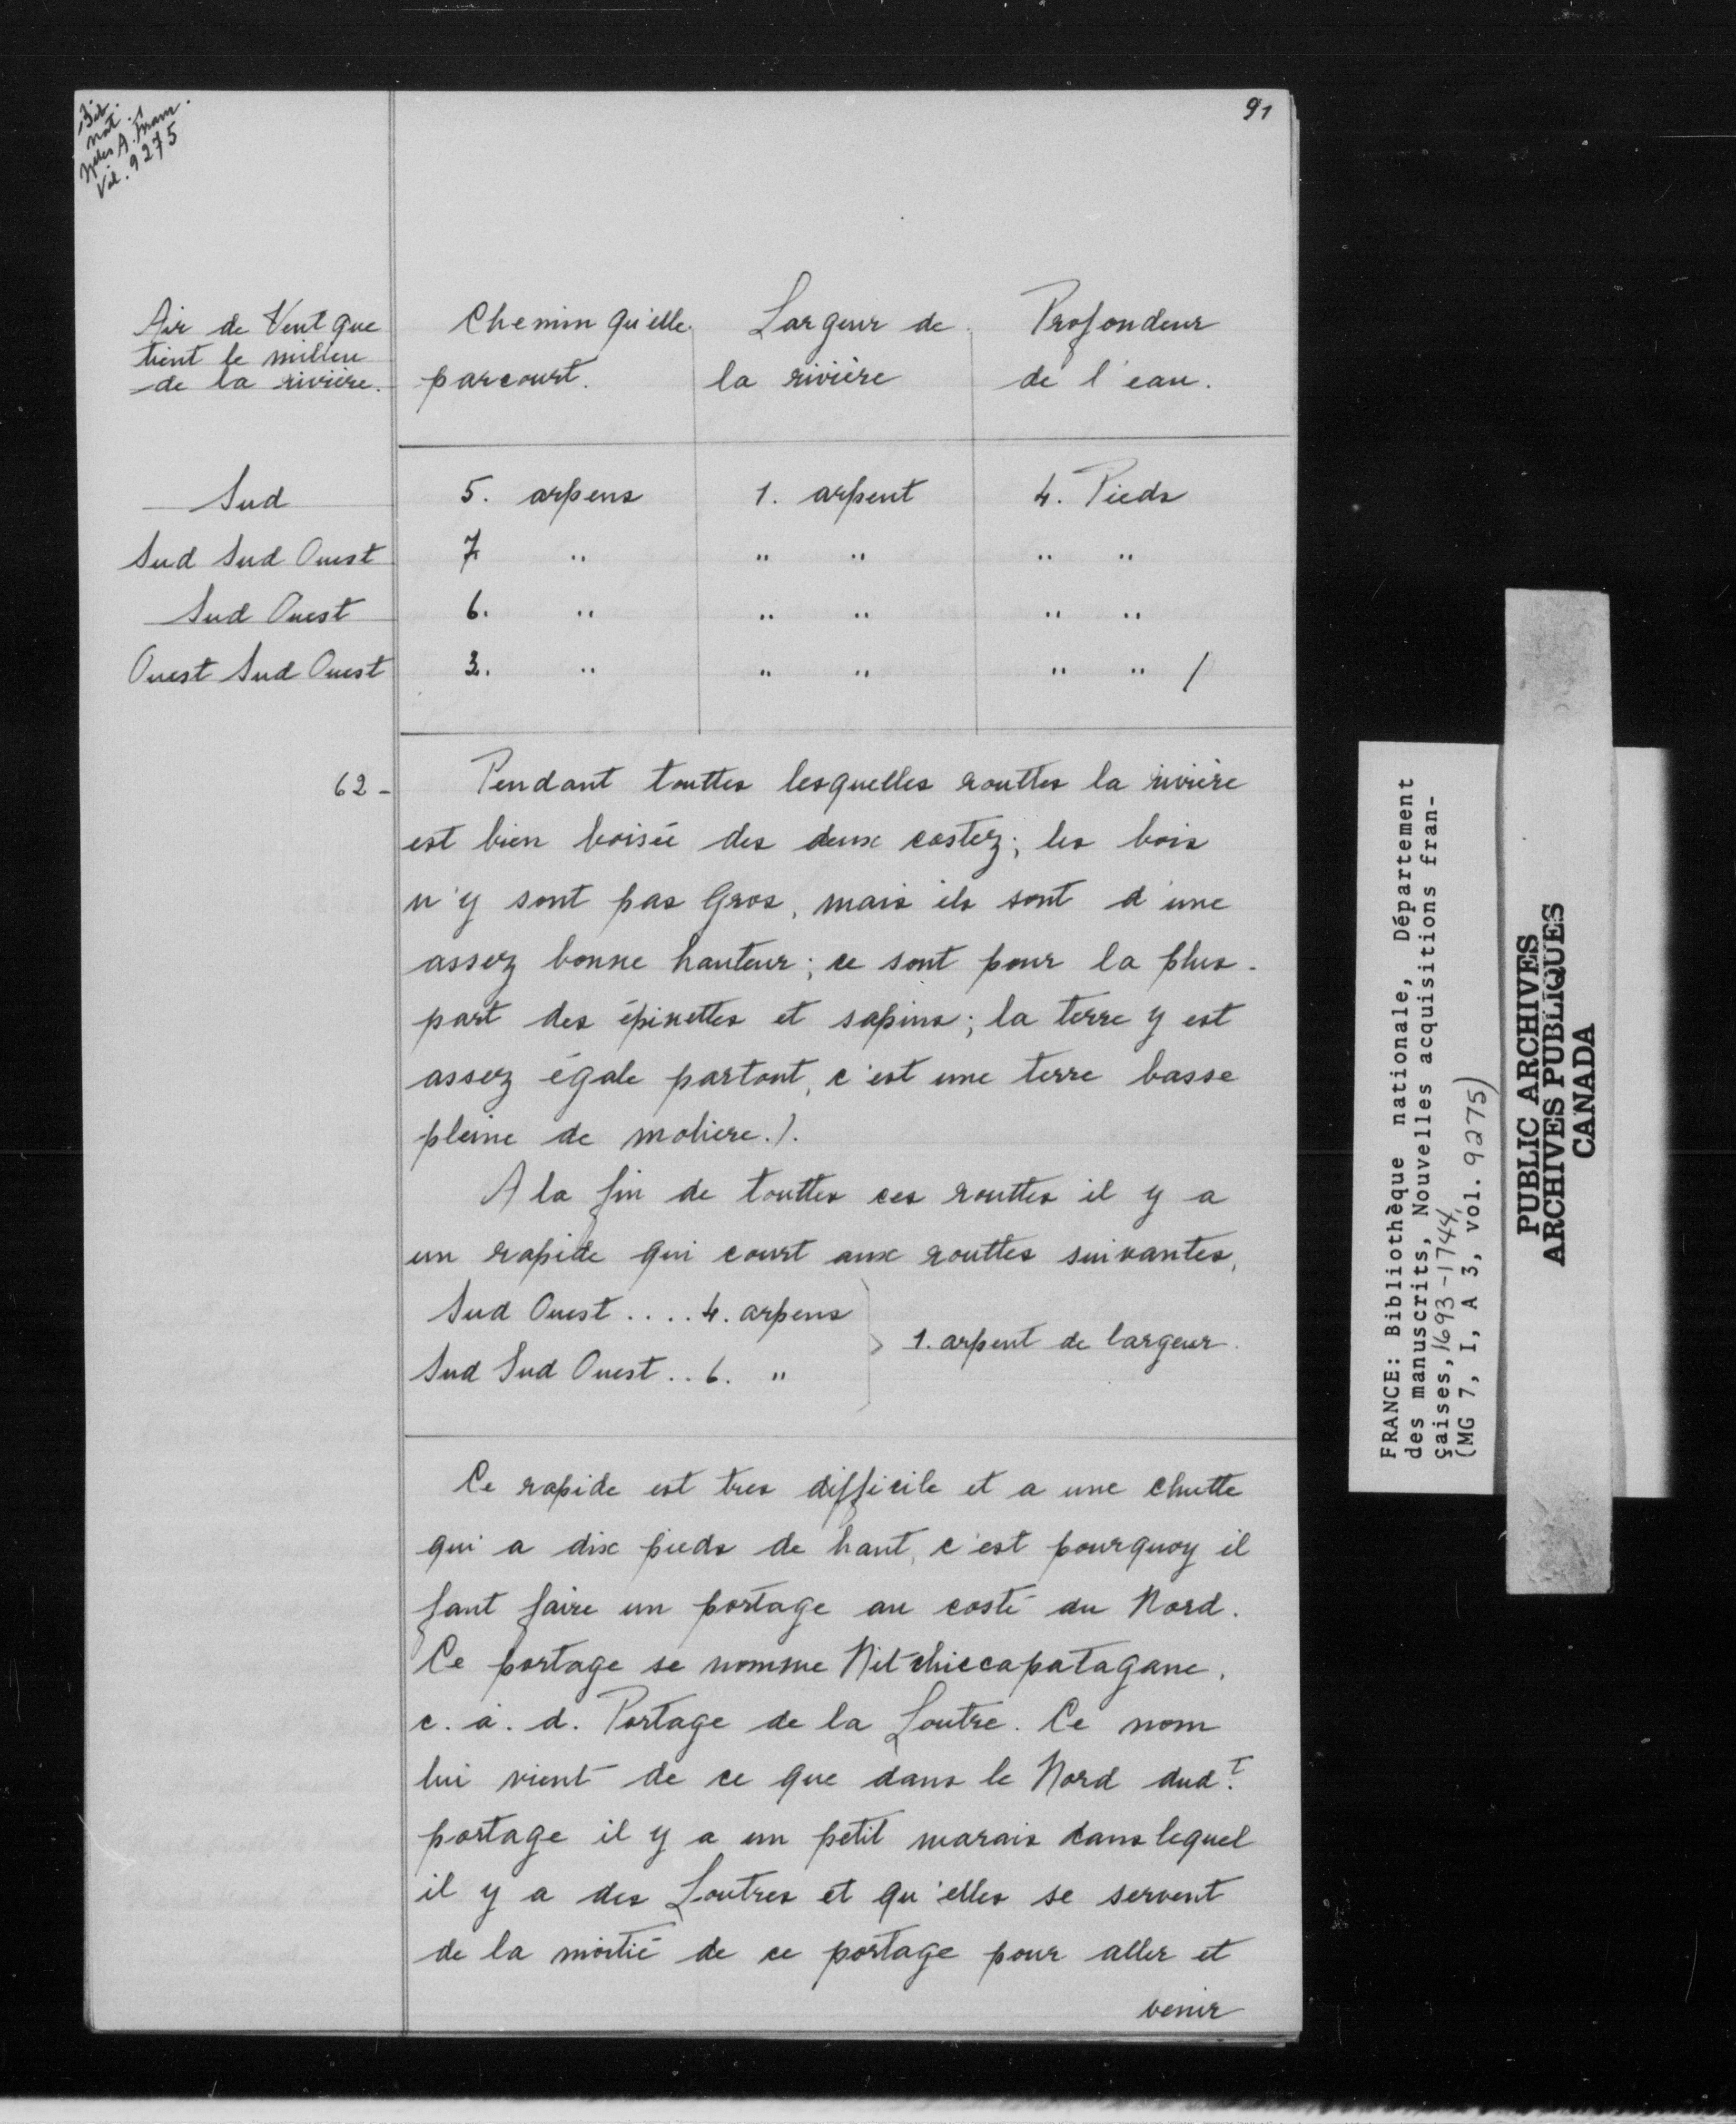 91
Bib.
nat.
Nelles A. Franc.
Vol. 9275
Air de Vent que
tient le milieu
de la rivière.
Chemin qu'elle
parcourt.
Largeur de
la rivière
Profondeur
de l'eau.
Sud 5. arpens 1. arpent 4. Pieds
Sud Sud Ouest 7 " " " " "
Sud Ouest 6. " " " " "
Ouest Sud Ouest 3. " " " " " /
62 - Pendant touttes lesquelles routtes la rivière
est bien boisée des deux costez; les bois
n'y sont pas Gros, mais ils sont d'une
assez bonne hauteur; ce sont pour la plus-
part des épinettes et sapins; la terre y est
assez égale partout, c'est une terre basse
pleine de moliere./.
A la fin de touttes ces routtes il y a
un rapide qui court aux routtes suivantes,
Sud Ouest .... 4. arpens
Sud Sud Ouest .. 6. "
} 1. arpent de largeur.
Ce rapide est tres difficile et a une chutte
qui a dix pieds de haut, c'est pourquoy il
faut faire un portage au costé du Nord.
Ce portage se nomme Nitchiccapatagane,
c. à. d. Portage de la Loutre. Ce nom
lui vient de ce que dans le Nord dud.t
portage il y a un petit marais dans lequel
il y a des Loutres et qu'elles se servent
de la moitié de ce portage pour aller et
venir
FRANCE: Bibliothèque nationale, Département
des manuscrits, Nouvelles acquisitions fran-
çaises, 1693-1744,
(MG 7, I, A 3, vol. 9275)
PUBLIC ARCHIVES
ARCHIVES PUBLIQUES
CANADA